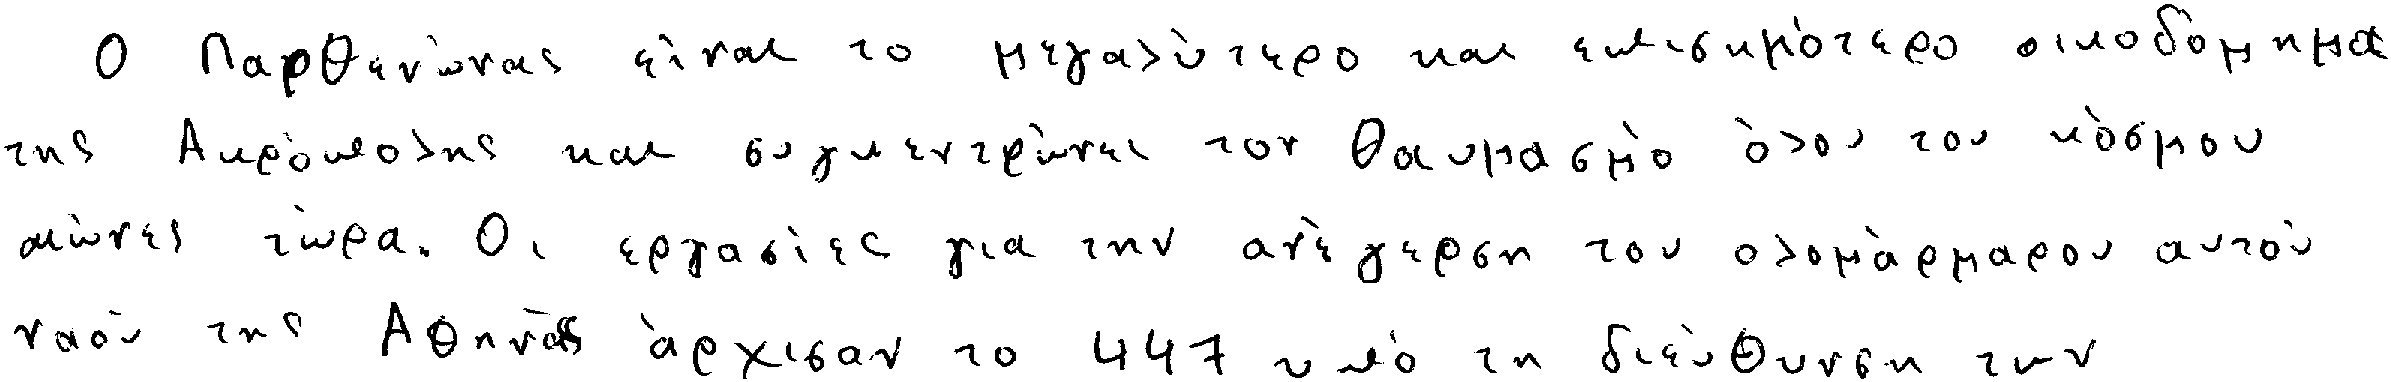 Ο Παρθενώνας είναι το μεγαλύτερο και επισημότερο οικοδόμημα
της Ακρόπολης και συγκεντρώνει τον θαυμασμό όλου του κόσμου
αιώνες τώρα. Οι εργασίες για την ανέγερση του ολομάρμαρου αυτού
ναού της Αθηνάς άρχισαν το 447 υπό τη διεύθυνση των